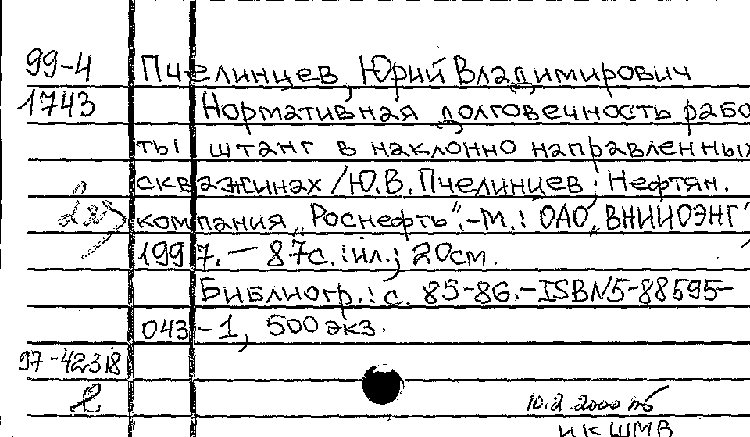 99-4 Пчелинцев, Юрий Владимирович
1743 Нормативная долговечность рабо
ты штанг в наклонно направленных
скважинах / Ю.В. Пчелинцев; Нефтян.
компания „Роснефть".-М.: ОАО „ВНИИОЭНГ",
1997.- 87с.:ил.; 20см.
Библиогр.: с. 85-86.-ISBN5-88595-
043-1, 500 экз.
97-42318
10.2.2000